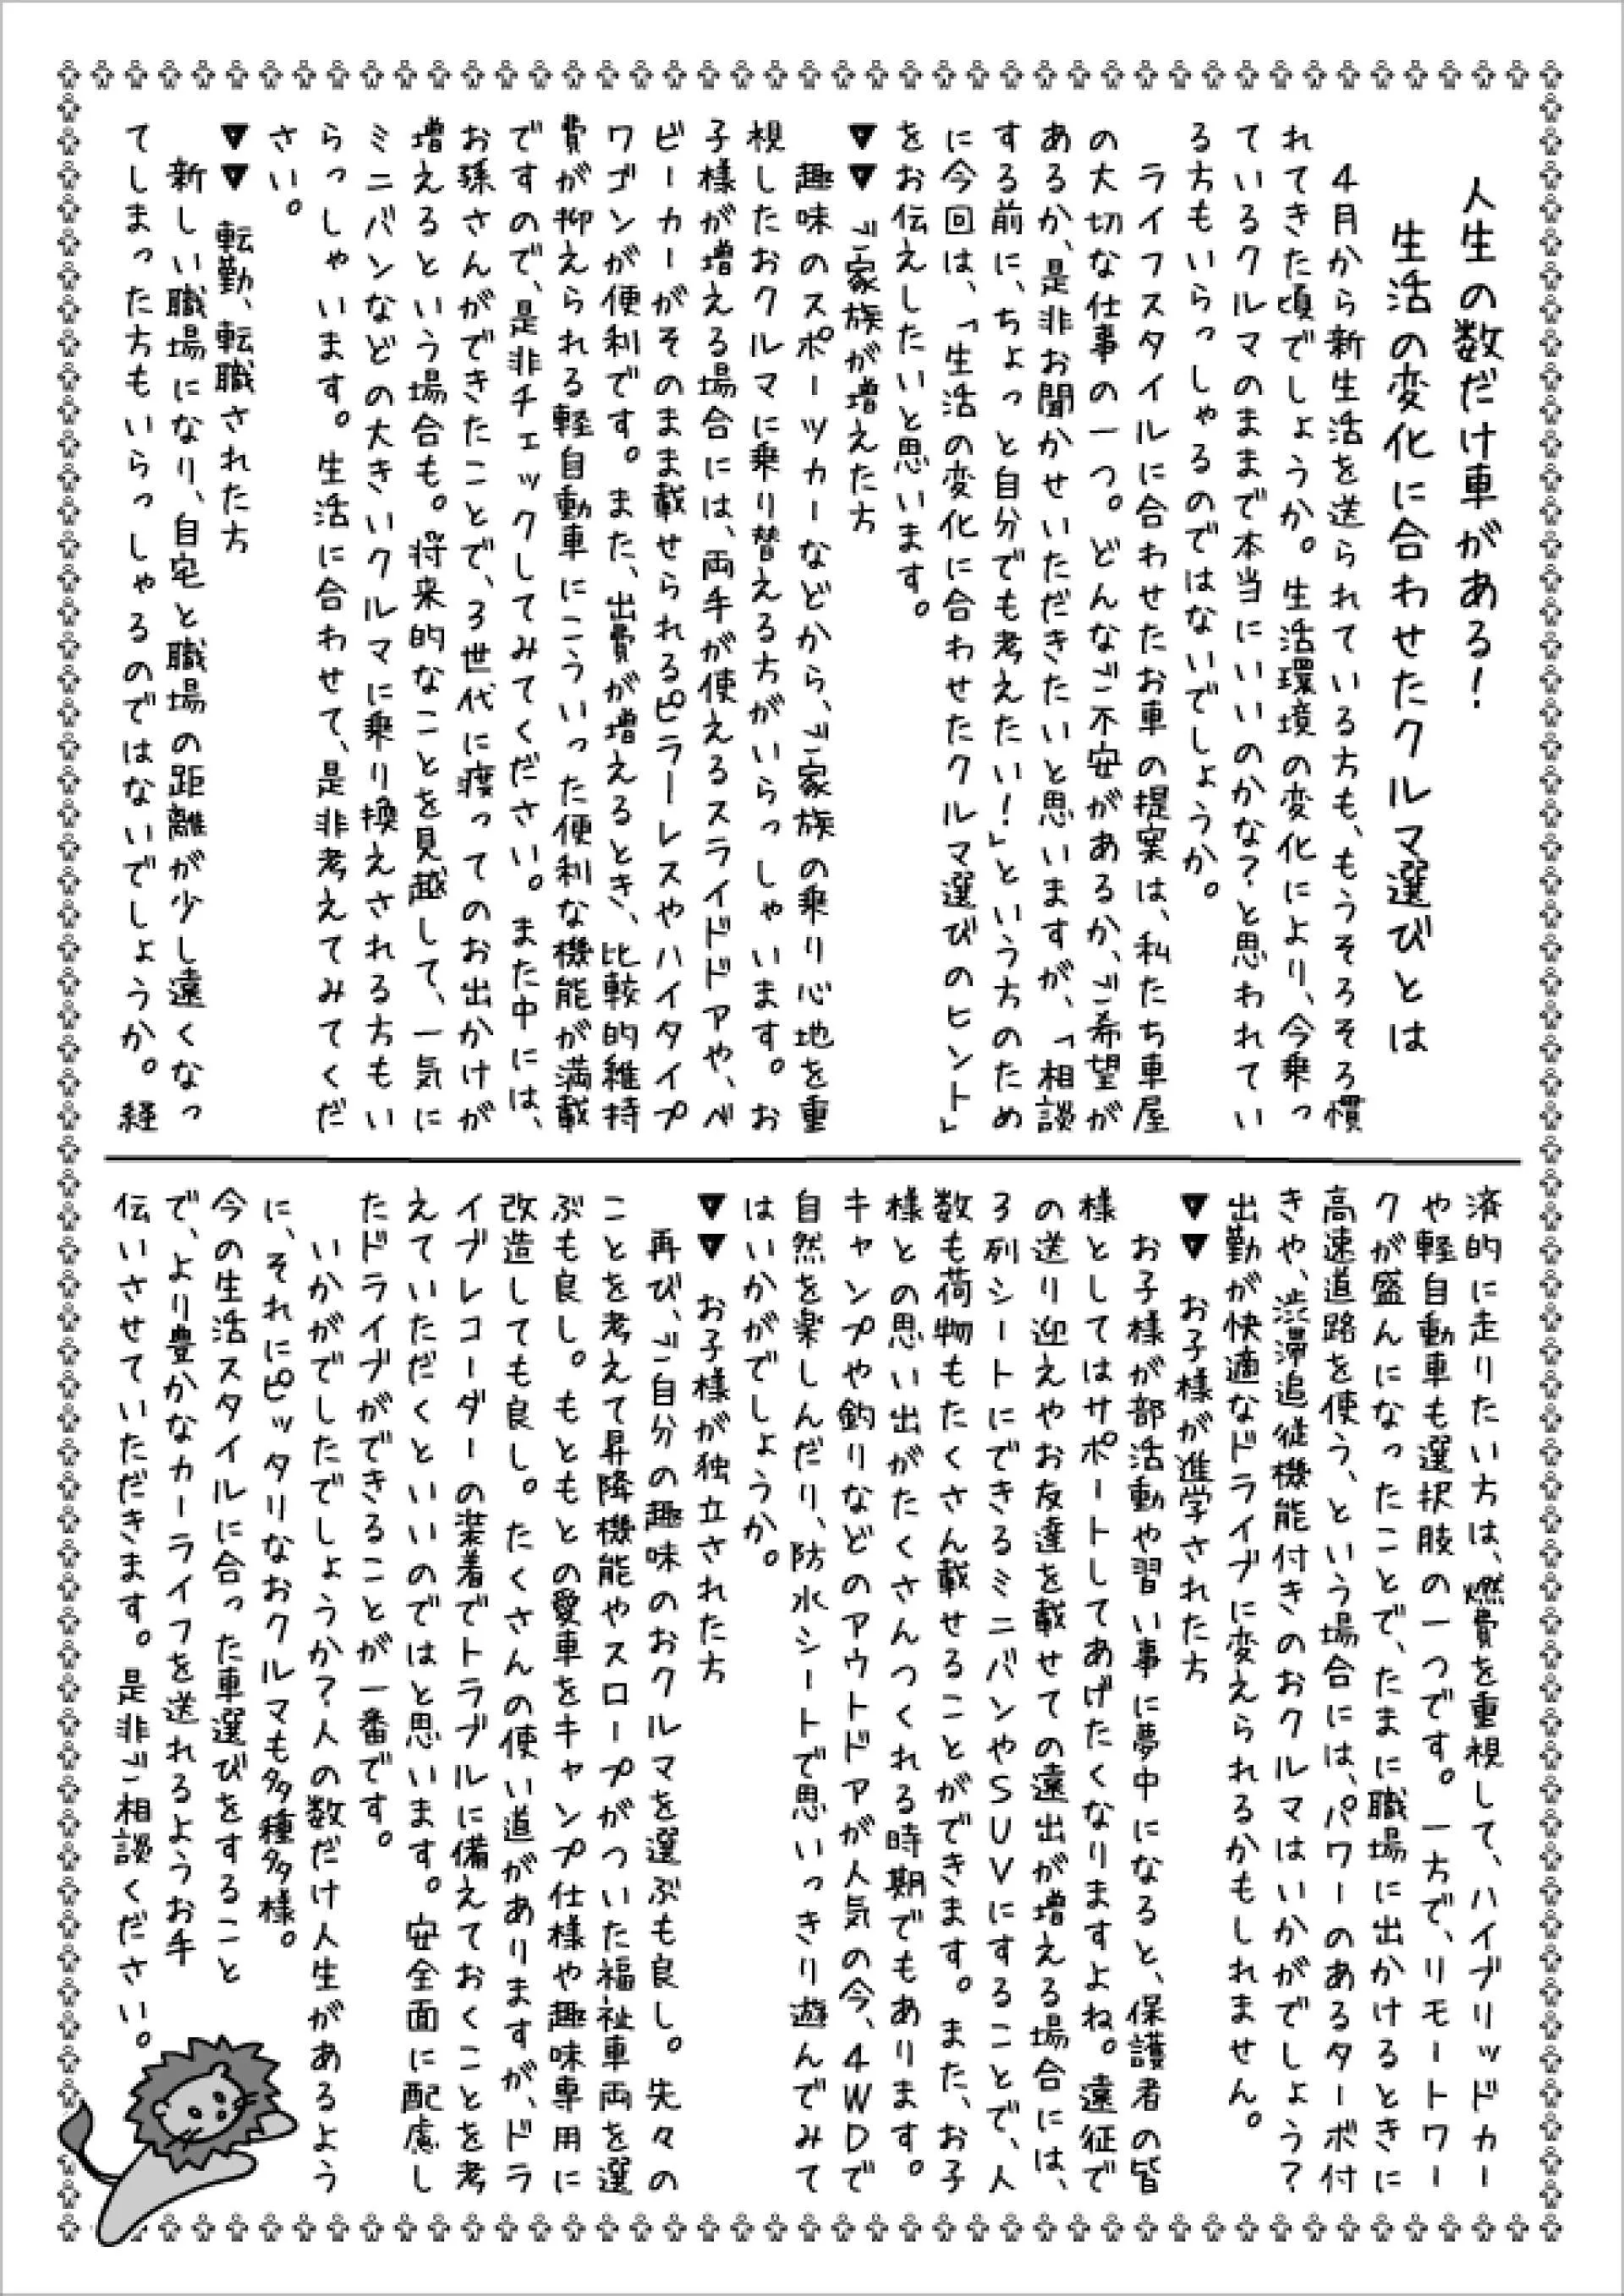 人生の数だけ車がある！
生活の変化に合わせたクルマ選びとは
４月から新生活を送られている方も、もうそろそろ慣
れてきた頃でしょうか。生活環境の変化により、今乗っ
ているクルマのままで本当にいいのかな？と思われてい
る方もいらっしゃるのではないでしょうか。
ライフスタイルに合わせたお車の提案は、私たち車屋
の大切な仕事の一つ。どんなご不安があるか、ご希望が
あるか、是非お聞かせいただきたいと思いますが、「相談
する前に、ちょっと自分でも考えたい！」という方のため
に今回は、「生活の変化に合わせたクルマ選びのヒント」
をお伝えしたいと思います。
▼▼　ご家族が増えた方
趣味のスポーツカーなどから、ご家族の乗り心地を重
視したおクルマに乗り替える方がいらっしゃいます。お
子様が増える場合には、両手が使えるスライドドアや、ベ
ビーカーがそのまま載せられるピラーレスやハイタイプ
ワゴンが便利です。また、出費が増えるとき、比較的維持
費が抑えられる軽自動車にこういった便利な機能が満載
ですので、是非チェックしてみてください。また中には、
お孫さんができたことで、３世代に渡ってのお出かけが
増えるという場合も。将来的なことを見越して、一気に
ミニバンなどの大きいクルマに乗り換えされる方もい
らっしゃいます。生活に合わせて、是非考えてみてくだ
さい。
▼▼　転勤、転職された方
新しい職場になり、自宅と職場の距離が少し遠くなっ
てしまった方もいらっしゃるのではないでしょうか。経
済的に走りたい方は、燃費を重視して、ハイブリッドカー
や軽自動車も選択肢の一つです。一方で、リモートワー
クが盛んになったことで、たまに職場に出かけるときに
高速道路を使う、という場合には、パワーのあるターボ付
きや、渋滞追従機能付きのおクルマはいかがでしょう？
出勤が快適なドライブに変えられるかもしれません。
▼▼　お子様が進学された方
お子様が部活動や習い事に夢中になると、保護者の皆
様としてはサポートしてあげたくなりますよね。遠征で
の送り迎えやお友達を載せての遠出が増える場合には、
３列シートにできるミニバンやＳＵＶにすることで、人
数も荷物もたくさん載せることができます。また、お子
様との思い出がたくさんつくれる時期でもあります。
キャンプや釣りなどのアウトドアが人気の今、４ＷＤで
自然を楽しんだり、防水シートで思いっきり遊んでみて
はいかがでしょうか。
▼▼　お子様が独立された方
再び、ご自分の趣味のおクルマを選ぶも良し。先々の
ことを考えて昇降機能やスロープがついた福祉車両を選
ぶも良し。もともとの愛車をキャンプ仕様や趣味専用に
改造しても良し。たくさんの使い道がありますが、ドラ
イブレコーダーの装着でトラブルに備えておくことを考
えていただくといいのではと思います。安全面に配慮し
たドライブができることが一番です。
いかがでしたでしょうか？人の数だけ人生があるよう
に、それにピッタリなおクルマも多種多様。
今の生活スタイルに合った車選びをすること
で、より豊かなカーライフを送れるようお手
伝いさせていただきます。是非ご相談ください。